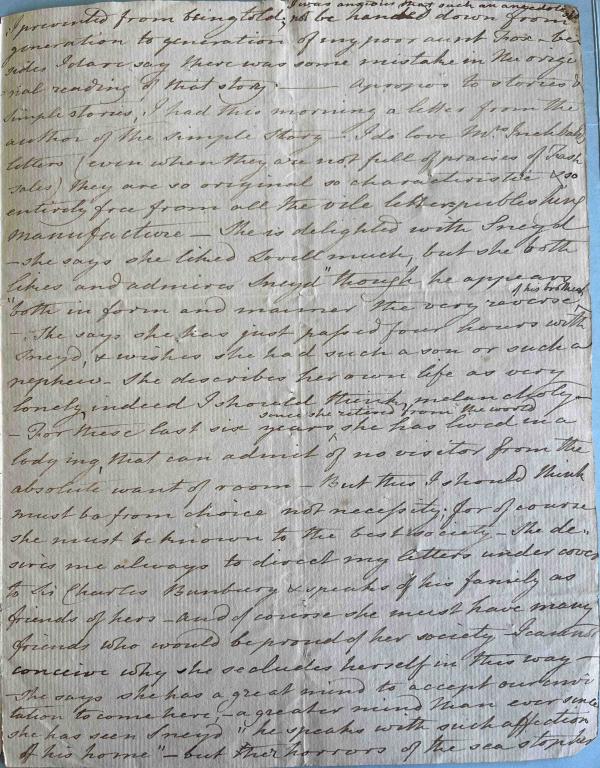 I was anxious that such an anecdote
I prevented from being told; not be handed down from
generation to generation of my poor aunt Fox – be
sides I dare say there was some mistake in the origi
nal reading of that story. —— Apropos to stories &
simple stories, I had this morning a letter from the
author of the Simple Story – I do love Mrs Inchbald's
letters (even when they are not full of praises of Fash
. tales) they are so original so characteristic & so
entirely free from all the vile letterpublishing
manufacture – She is delighted with Sneyd
– she says she liked Lovell much, but she both
likes and admires Sneyd "though he appears
"both in form and manner the very reverse
of his brother
– She says she has just passed four hours with
Sneyd, & wishes she had such a son or such a
nephew – She describes her own life as very
lonely, indeed I should think, melancholy –
since she retired from the world
– For these last six years she has lived in a
lodging, that can admit of no visitor from the
absolute want of room – But this I should think
must be from choice not necessity; for of course
she must be known to the best society – She de-
sires me always to direct my letters under cover
to Sir Charles Bunbury & speaks of his family as
friends of hers – and of course she must have many
friends who would be proud of her society – I cannot
conceive why she secludes herself in this way
– She says she has a great mind to accept our invi
tation to come here, – a greater mind than ever since
she has seen Sneyd "he speaks with such affection
of his home" – but the horrors of the sea stop her